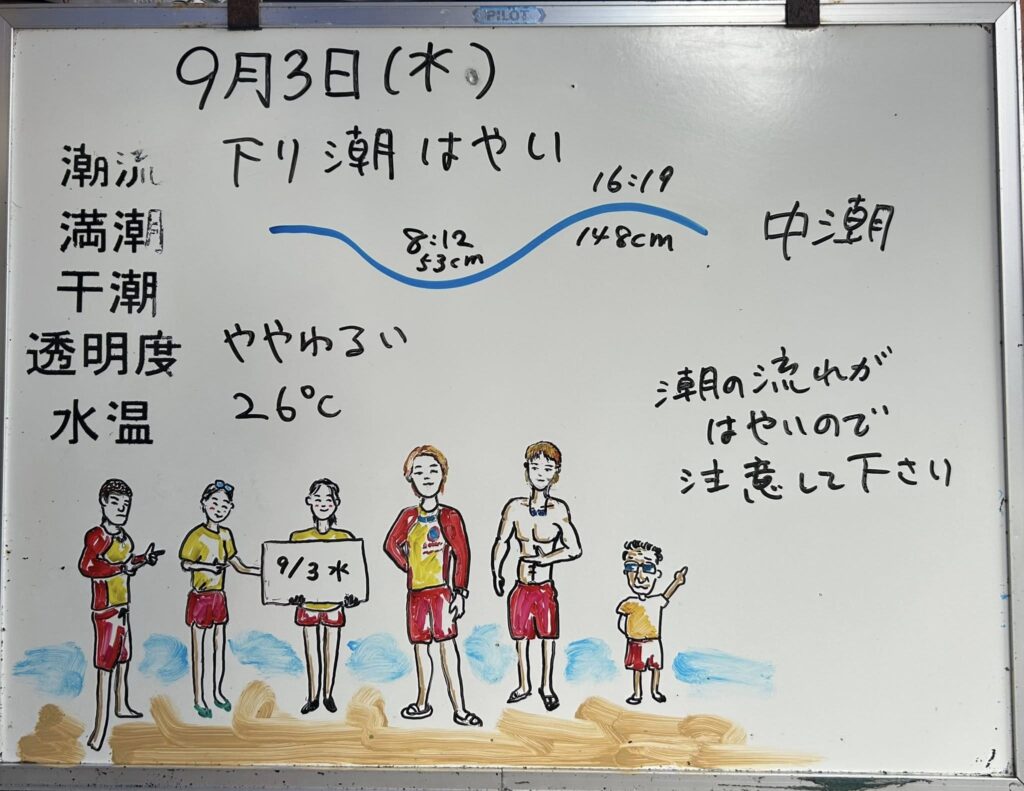 PILOT
9月3日(水)
潮流 下り潮 はやい
満潮
干潮
16:19
148cm
8:12
53cm
中潮
透明度 ややわるい
水温 26℃
潮の流れが
はやいので
注意して下さい
9/3 水